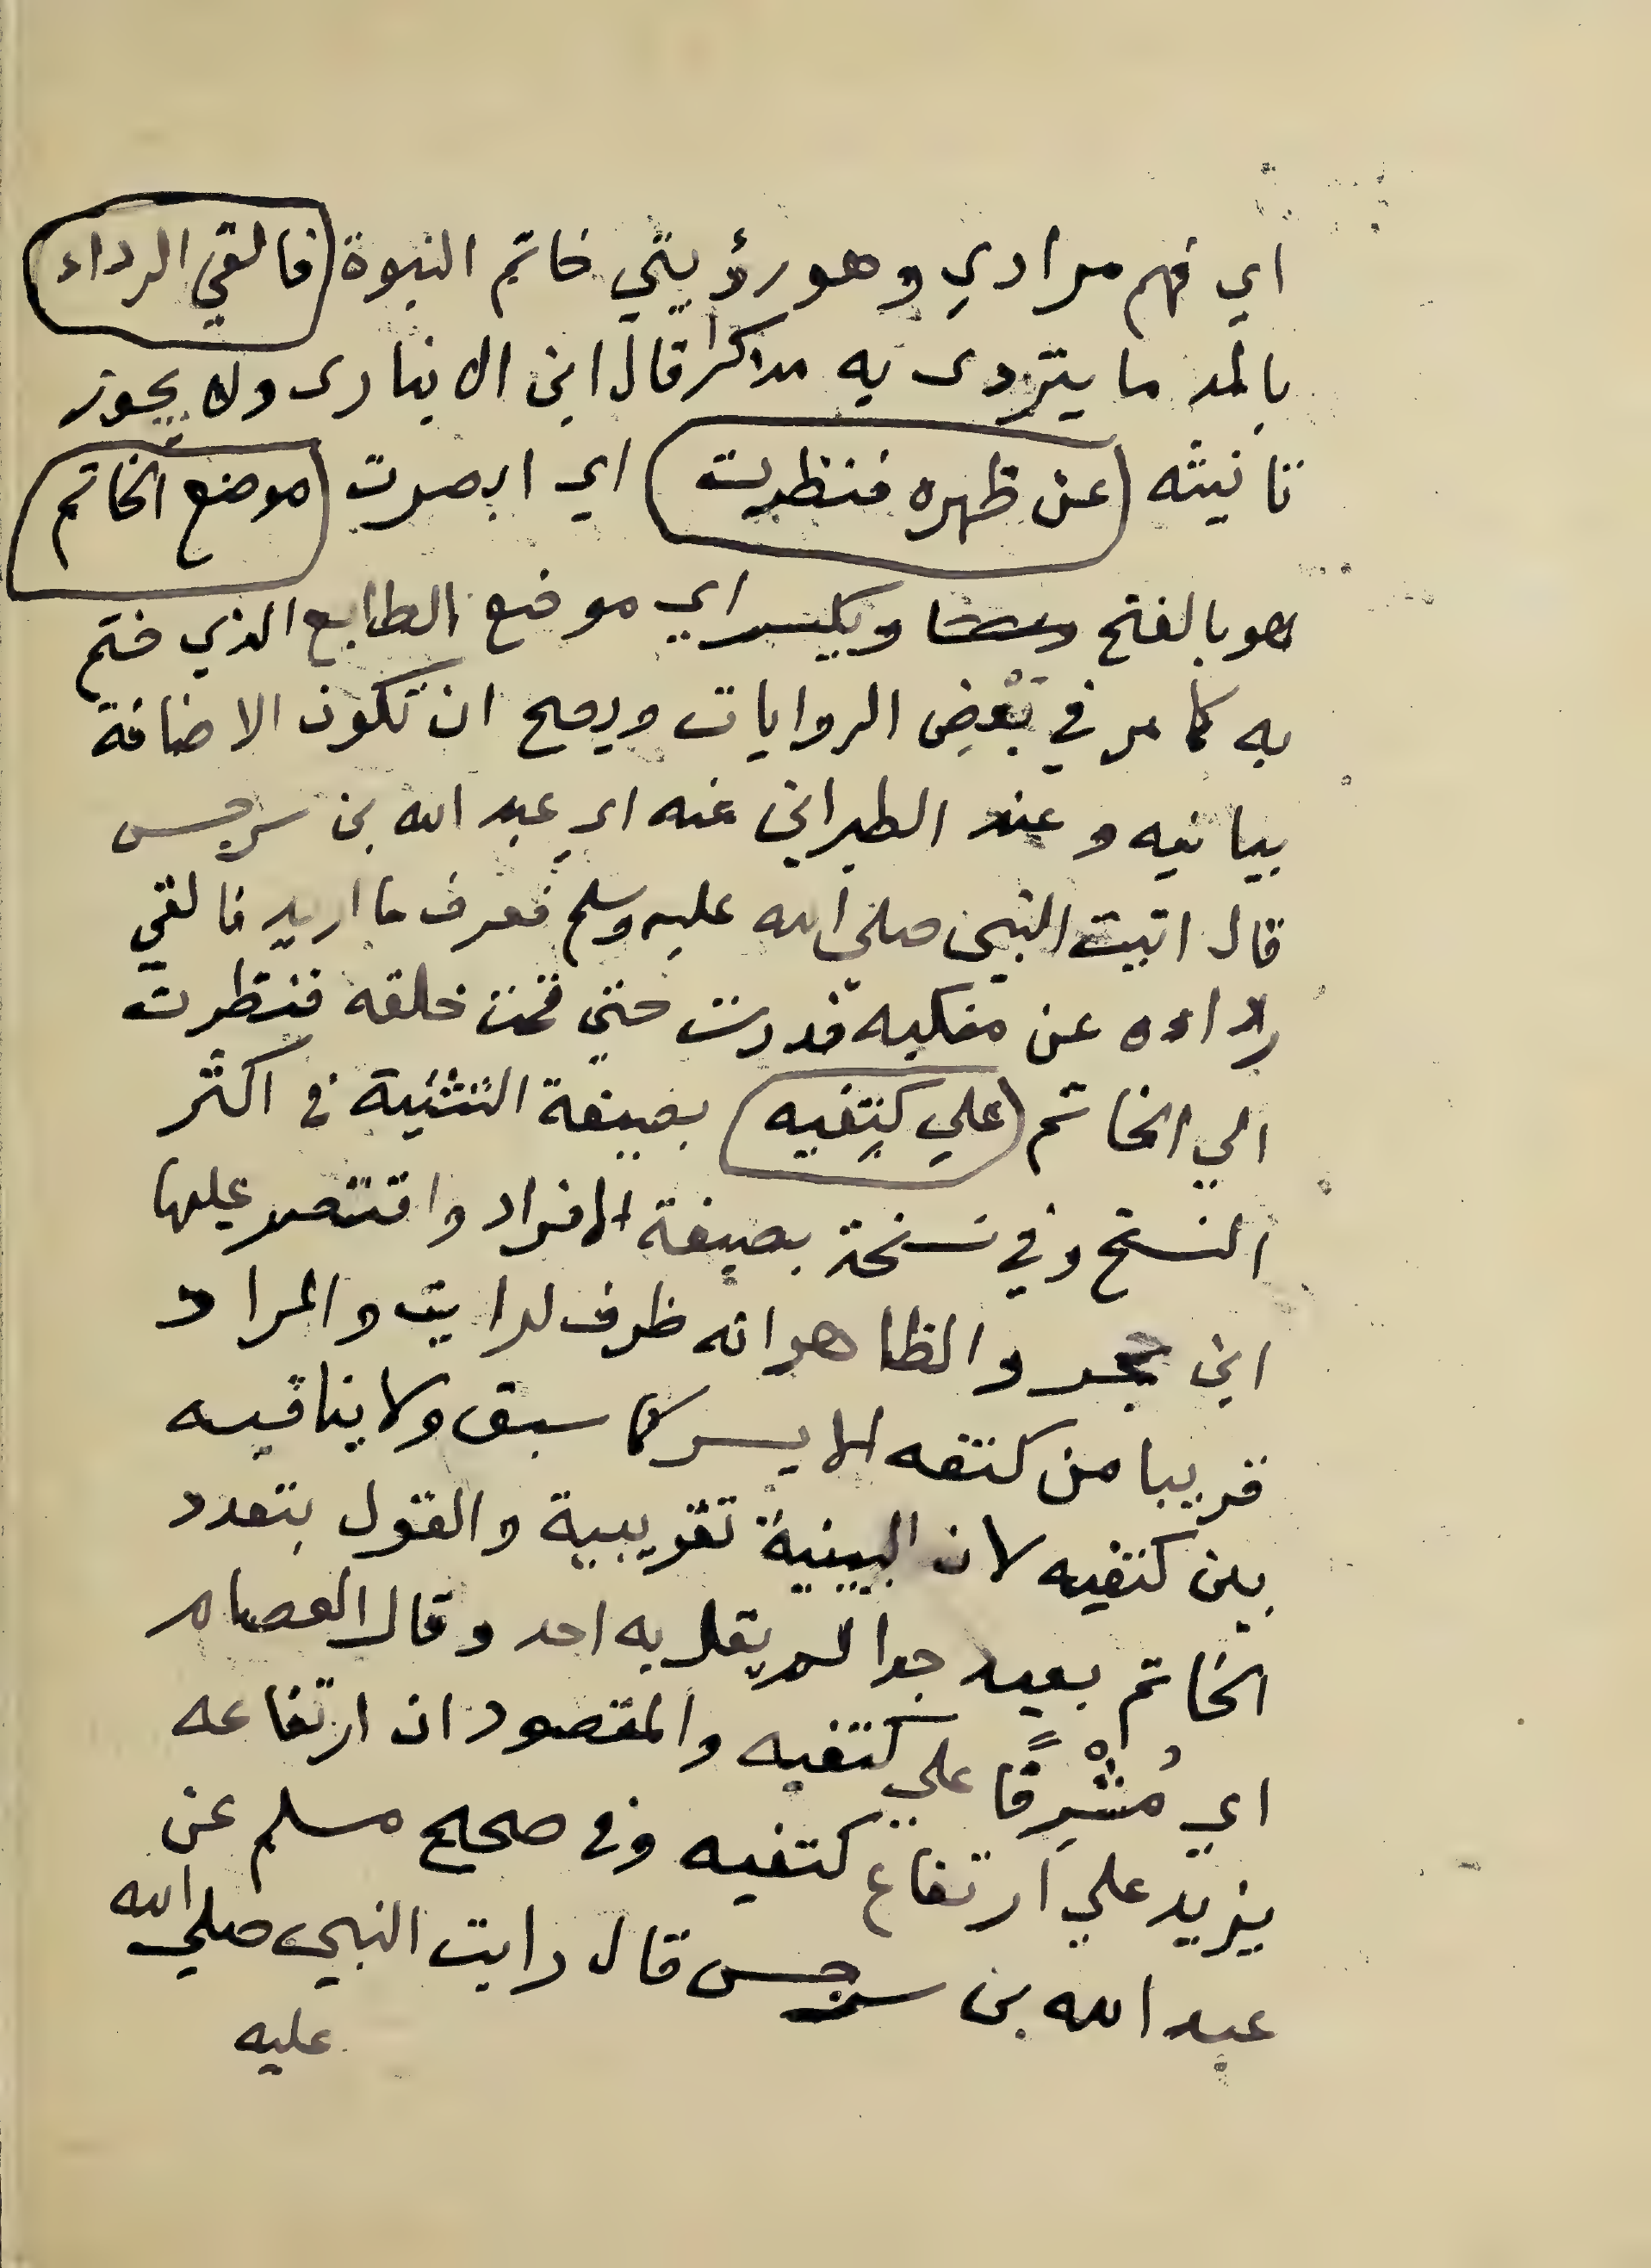 اي فهم مرادي وهو رؤيتي خاتم النبوة (فالقي الرداء
بالمد ما يتردى به مذكرا قال ابن الانبارى ولا يجوز
تانيثه (عن ظهره فنظرت) اي ابصرت (موضع الخاتم
هو بالفتح ويكسر اي موضع الطابع الذي ختم
به كما مر في بعض الروايات ويصح ان تكون الاضافة
بيانيه وعند الطبراني عنه اي عبد الله بن سرجس
قال اتيت النبي صلي الله عليه وسلم فعرف ما اريد فالقي
رداءه عن منكبيه فدرت حتي قمت خلفه فنظرت
الي الخاتم (علي كتفيه) بصيغة التثنية في اكثر
النسخ وفي نسخة بصيغة الافراد واقتصر عليها
ابن حجر والظاهر انه ظرف لرايت والمراد
قريبا من كتفه الايسر كما سبق ولا ينافيه
بين كتفيه لان البينية تقريبية والقول بتعدد
الخاتم بعيد جدا لم يقل به احد وقال العصام
اي مُشْرِفًا علي كتفيه والمقصود ان ارتفاعه
يزيد علي ارتفاع كتفيه وفي صحيح مسلم عن
عبد الله بن سرجس قال رايت النبي صلي الله
عليه